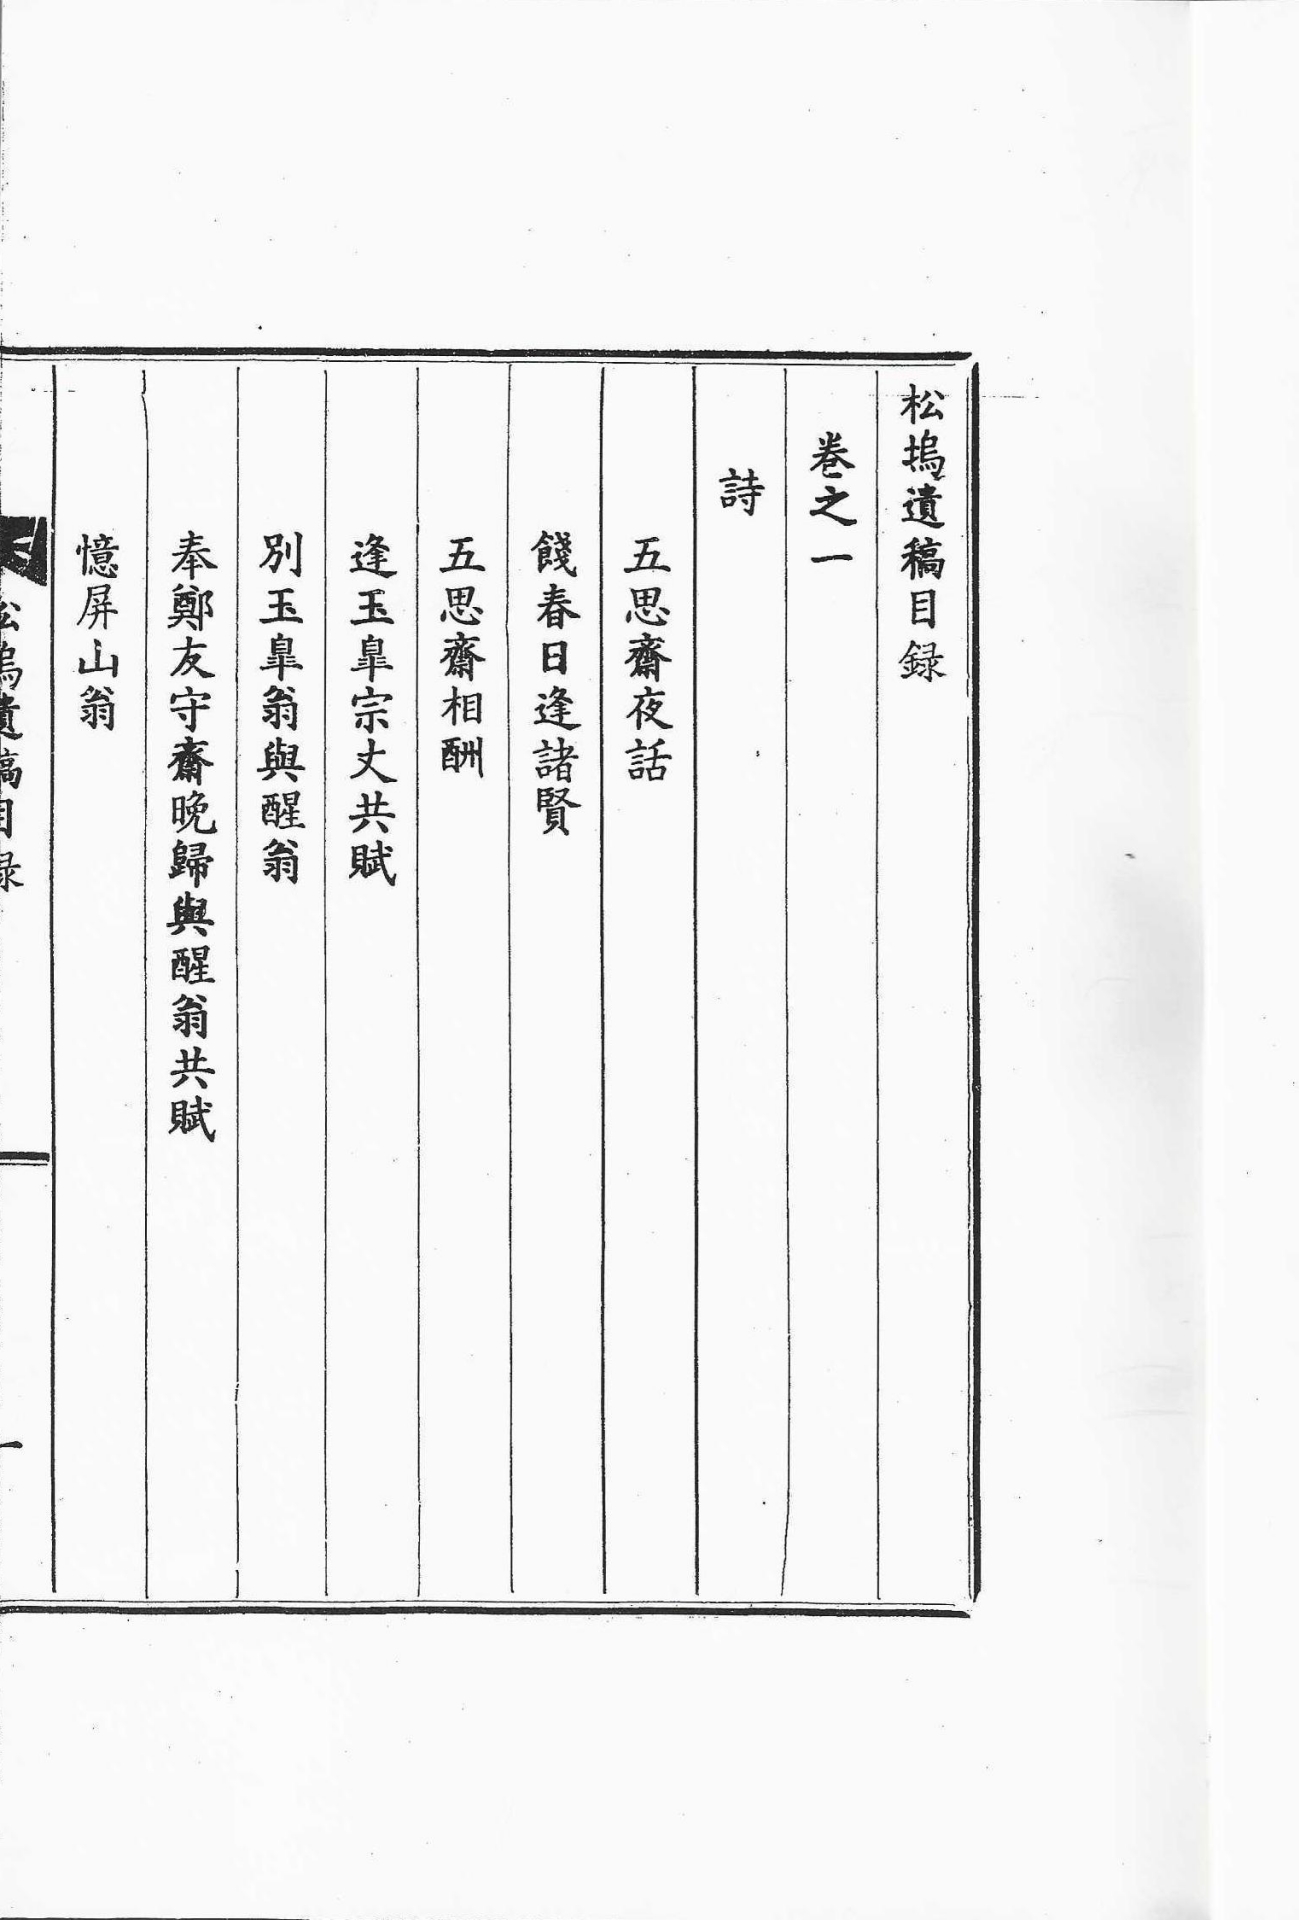 松塢遺稿目録
卷之一
詩
五思齋夜話
餞春日逢諸賢
五思齋相酬
逢玉臯宗丈共賦
別玉臯翁與醒翁
奉鄭友守齋晚歸與醒翁共賦
憶屏山翁
松塢遺稿目録
一